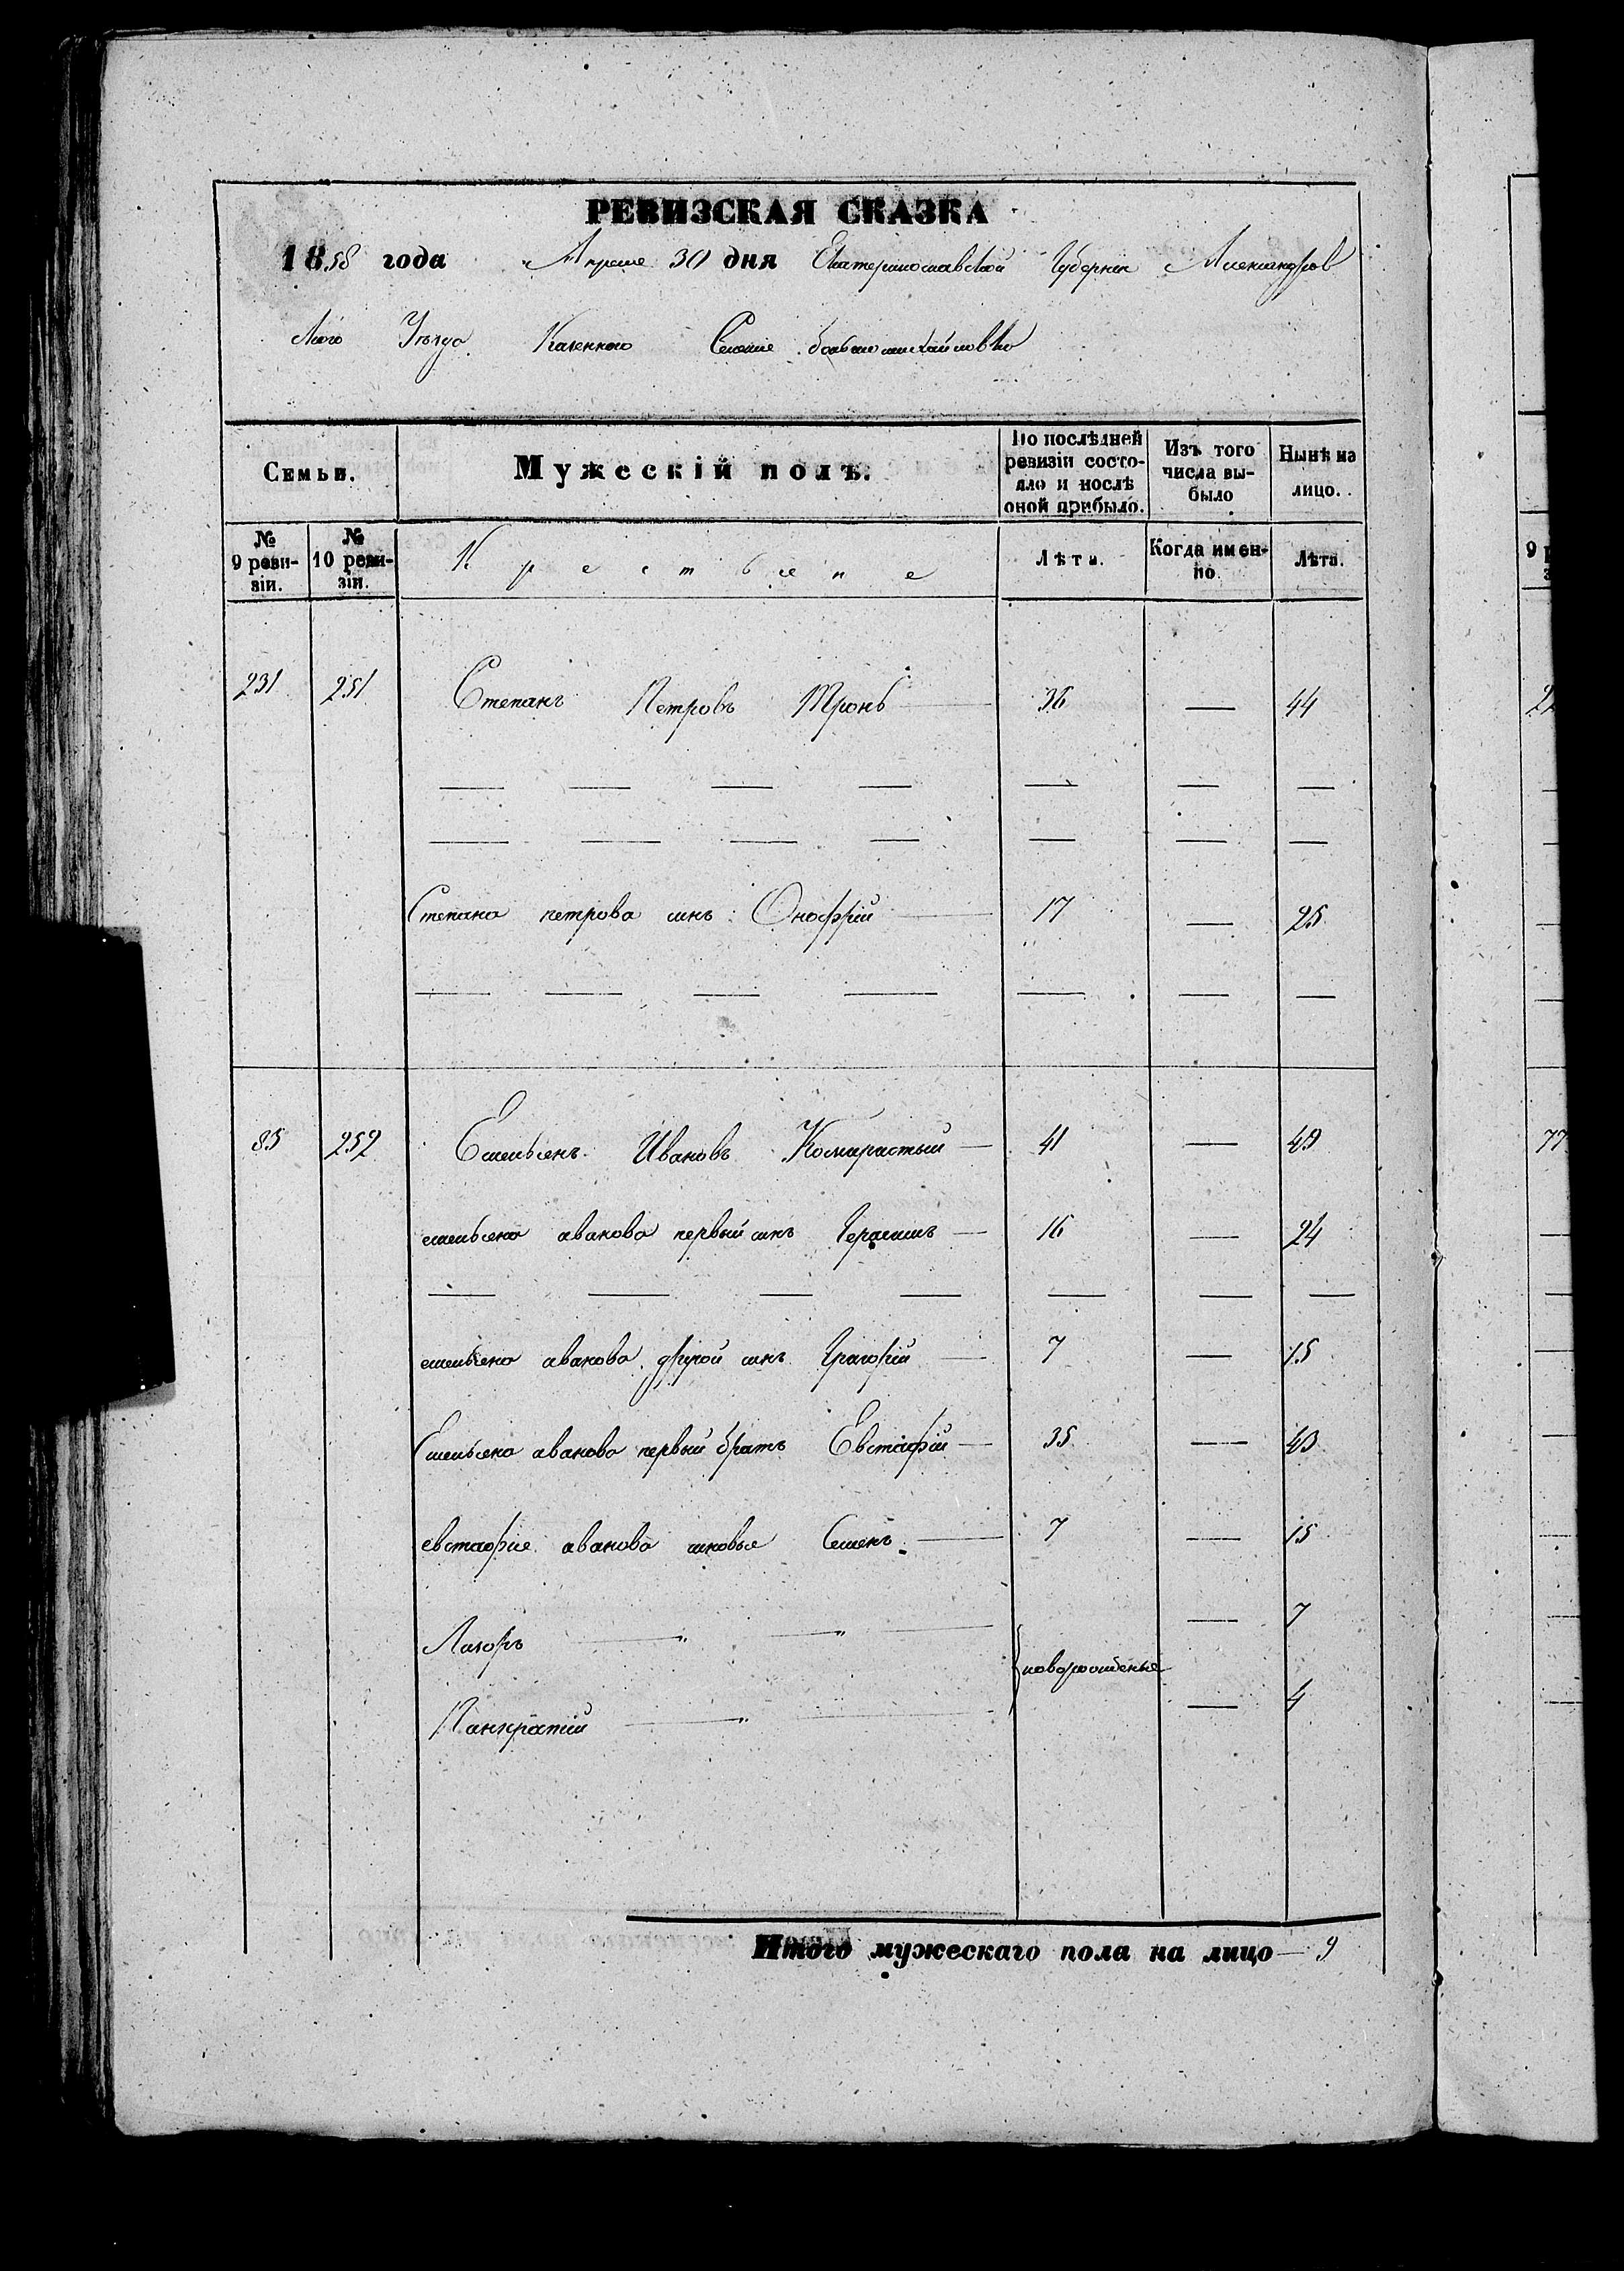 РЕВИЗСКАЯ СКАЗКА
1858 года Апреля 30 дня Екатеринославской Губернии Александров
ского Уезда Казенного Селения большомихайловки
Семьи. Мужескій полъ. По послѣдней ревизіи состояло и послѣ оной прибыло. Изъ того числа выбыло Нынѣ на лицо.
№ 9 ревизіи. № 10 ревизіи. Крестьяне Лѣта. Когда именно. Лѣта.
231 251 Степанъ Петровъ Тронь 36 — 44
— — — — — — —
— — — — — — —
Степана петрова сынъ Онофрій 17 — 25
— — — — — — —
85 252 Емельянъ Ивановъ 41 — 49
емельяна иванова первый сынъ Герасимъ 16 — 24
— — — — — — —
емельяна иванова другой сынъ Григорій 7 — 15
Емельяна иванова первый братъ Евстафій 35 — 43
евстафия иванова сыновья Семенъ 7 — 15
Лазоръ — 7
новорожденые
Панкратій — 4
Итого мужескаго пола на лицо — 9
9
77